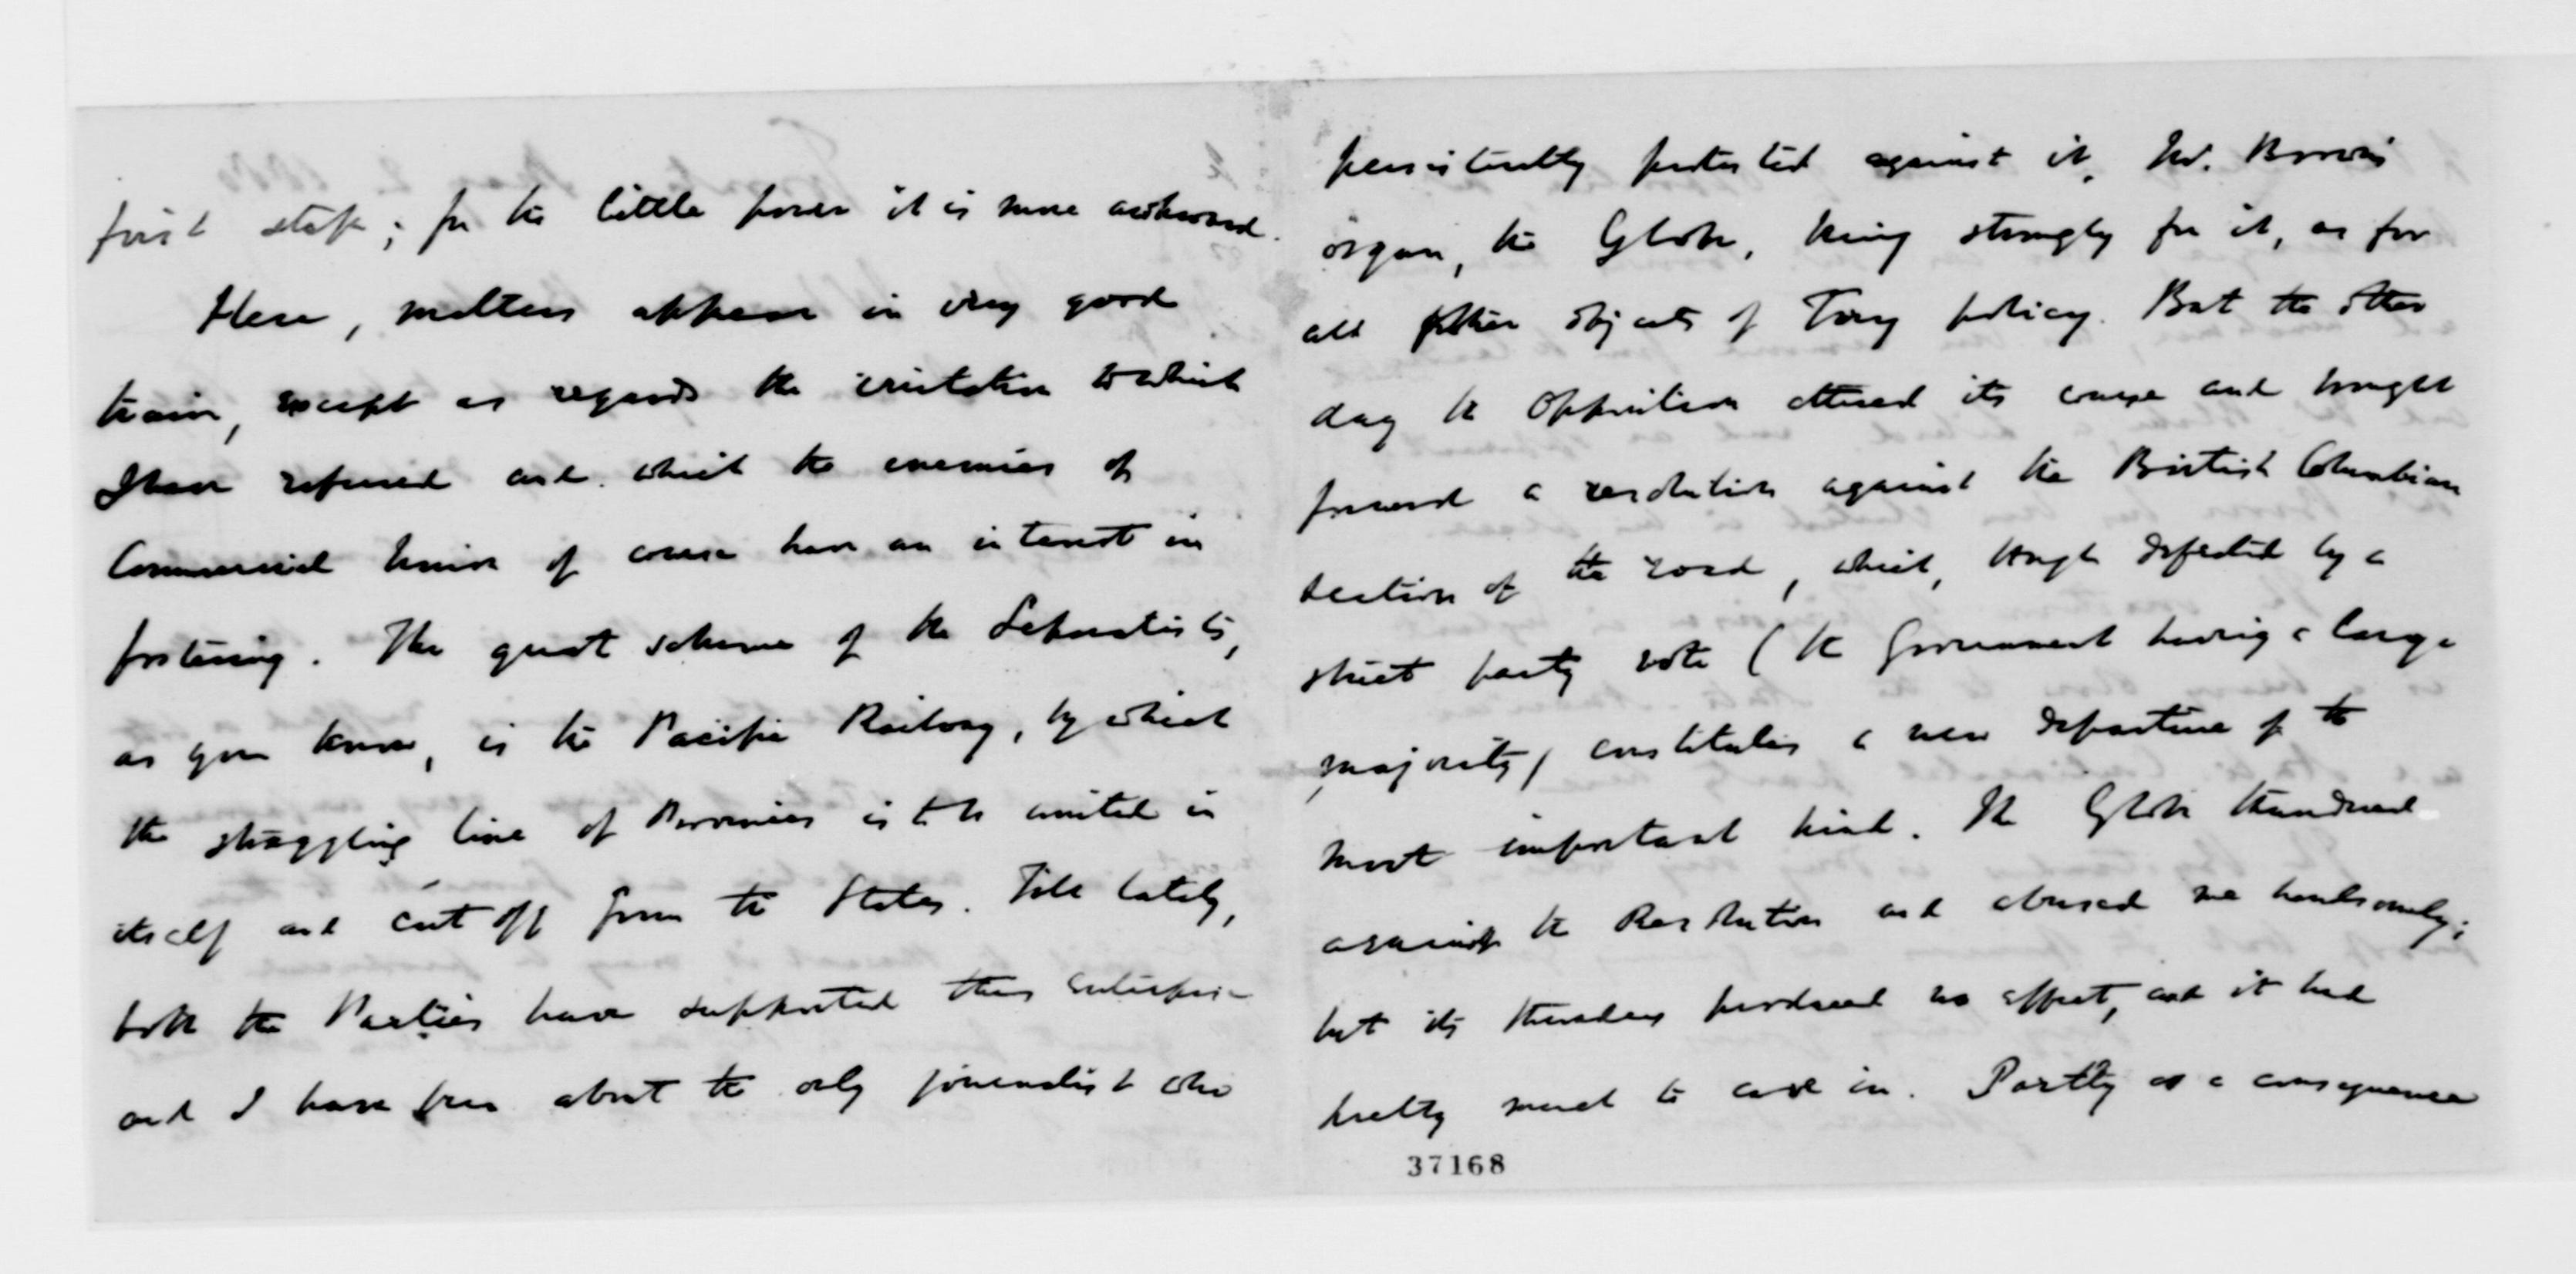 first step; for the little power it is more awkward.
Here, matters appear in very good
train, except as regards the irritation to which
I have referred and which the enemies of
Commercial Union of course have an interest in
fostering. The great scheme of the Separatists,
as you know, is the Pacific Railway, by which
the straggling line of Provinces is to be united in
itself and cut off from the States. Till lately,
both the Parties have supported this enterprise
and I have been about the only journalist who
persistently protested against it, Mr. Brown's
organ, the Globe, being strongly for it, as for
all other objects of Tory policy. But the other
day the Opposition altered its course and brought
forward a resolution against the British Columbian
section of the road, which, though defeated by a
strict party vote (the Government having a large
majority) constitutes a new departure of the
most important kind. The Globe thundered
against the Resolution and abused me handsomely;
but its thunders produced no effect, and it had
pretty much to cave in. Partly as a consequence
37168